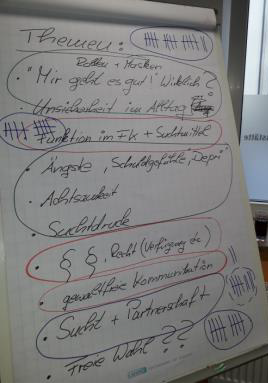 Themen:
Rollen + Masken
• "Mir geht es gut!" Wirklich?
• Unsicherheit im Alltag
• Funktion im FK + Suchtmittel
• Ängste, Schuldgefühle, "Depri"
• Achtsamkeit
• Suchtdruck
• § §, Recht (Verfügung etc.)
• gewaltfreie Kommunikation
• Sucht + Partnerschaft
• Freie Wahl ??